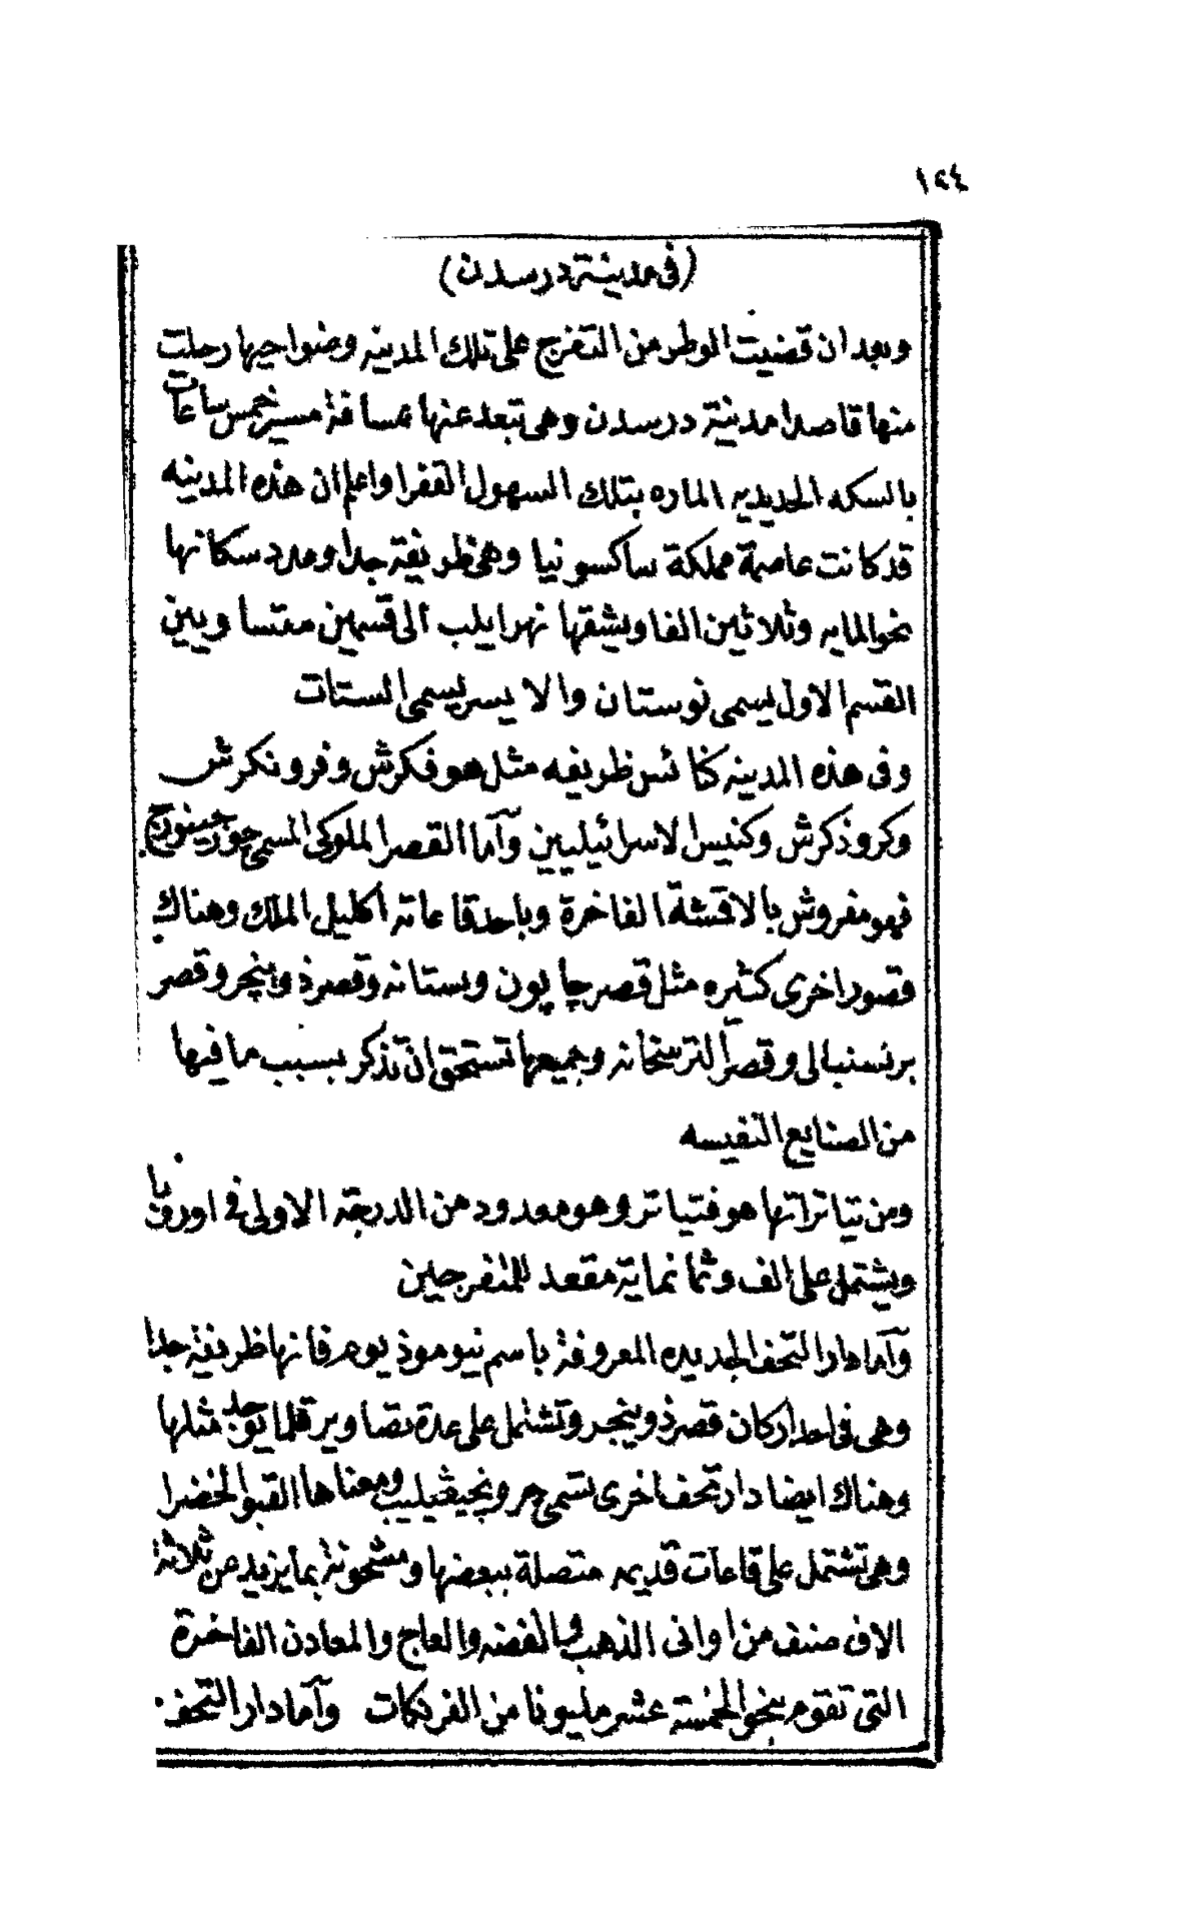 ١٤٤
(في مدينة درسدن)
وبعد ان قضيت الوطر من التفرج على تلك المدينه وضواحيها رحلت
منها قاصدا مدينة درسدن وهى تبعد عنها بمسافة مسير خمس ساعات
بالسكه الحديديه الماره بتلك السهول القفرا واعلم ان هذه المدينه
قد كانت عاصمة مملكة ساكسونيا وهى ظريفة جدا وعدد سكانها
نحو المايه وثلاثين الفا ويشقها نهر ايلب الى قسمين متساويين
القسم الاول يسمى نوستان والايسر يسمى الستات
وفى هذه المدينه كنائس ظريفه مثل هوفكرش وفرونكرش
وكروذكرش وكنيس الاسرائيليين وآما القصر الملوكى المسمى
فهو مفروش بالاقشة الفاخرة وباحد قاعاته اكليل الملك وهناك
قصور اخرى كثيره مثل قصر چاپون وبستانه وقصر ذوينجر وقصر
برنسنبالى وقصر الترسخانه وجميعها تستحق ان تذكر بسبب ما فيها
من الصنايع النفيسه
ومن تياتراتها هوفتياتر وهو معدود من الدرجة الاولى فى اوروپا
ويشتمل على الف وثمانماية مقعد للمتفرجين
وآما دار التحف الجديده المعروفة باسم نيوموذيوم فانها ظريفة جدا
وهى فى احد اركان قصر ذوينجر وتشتمل على عدة تصاوير قلما يوجد مثلها
وهناك ايضا دار تحف اخرى تسمى ومعناها القبو الخضرا
وهى تشتمل على قاعات قديمه متصلة ببعضها ومشحونة بما يزيد عن ثلاثة
الاف صنف من اوانى الذهب والفضه والعاج والمعادن الفاخرة
التى تقوم بنحو الخمسة عشر مليونا من الفرنكات وآما دار التحف